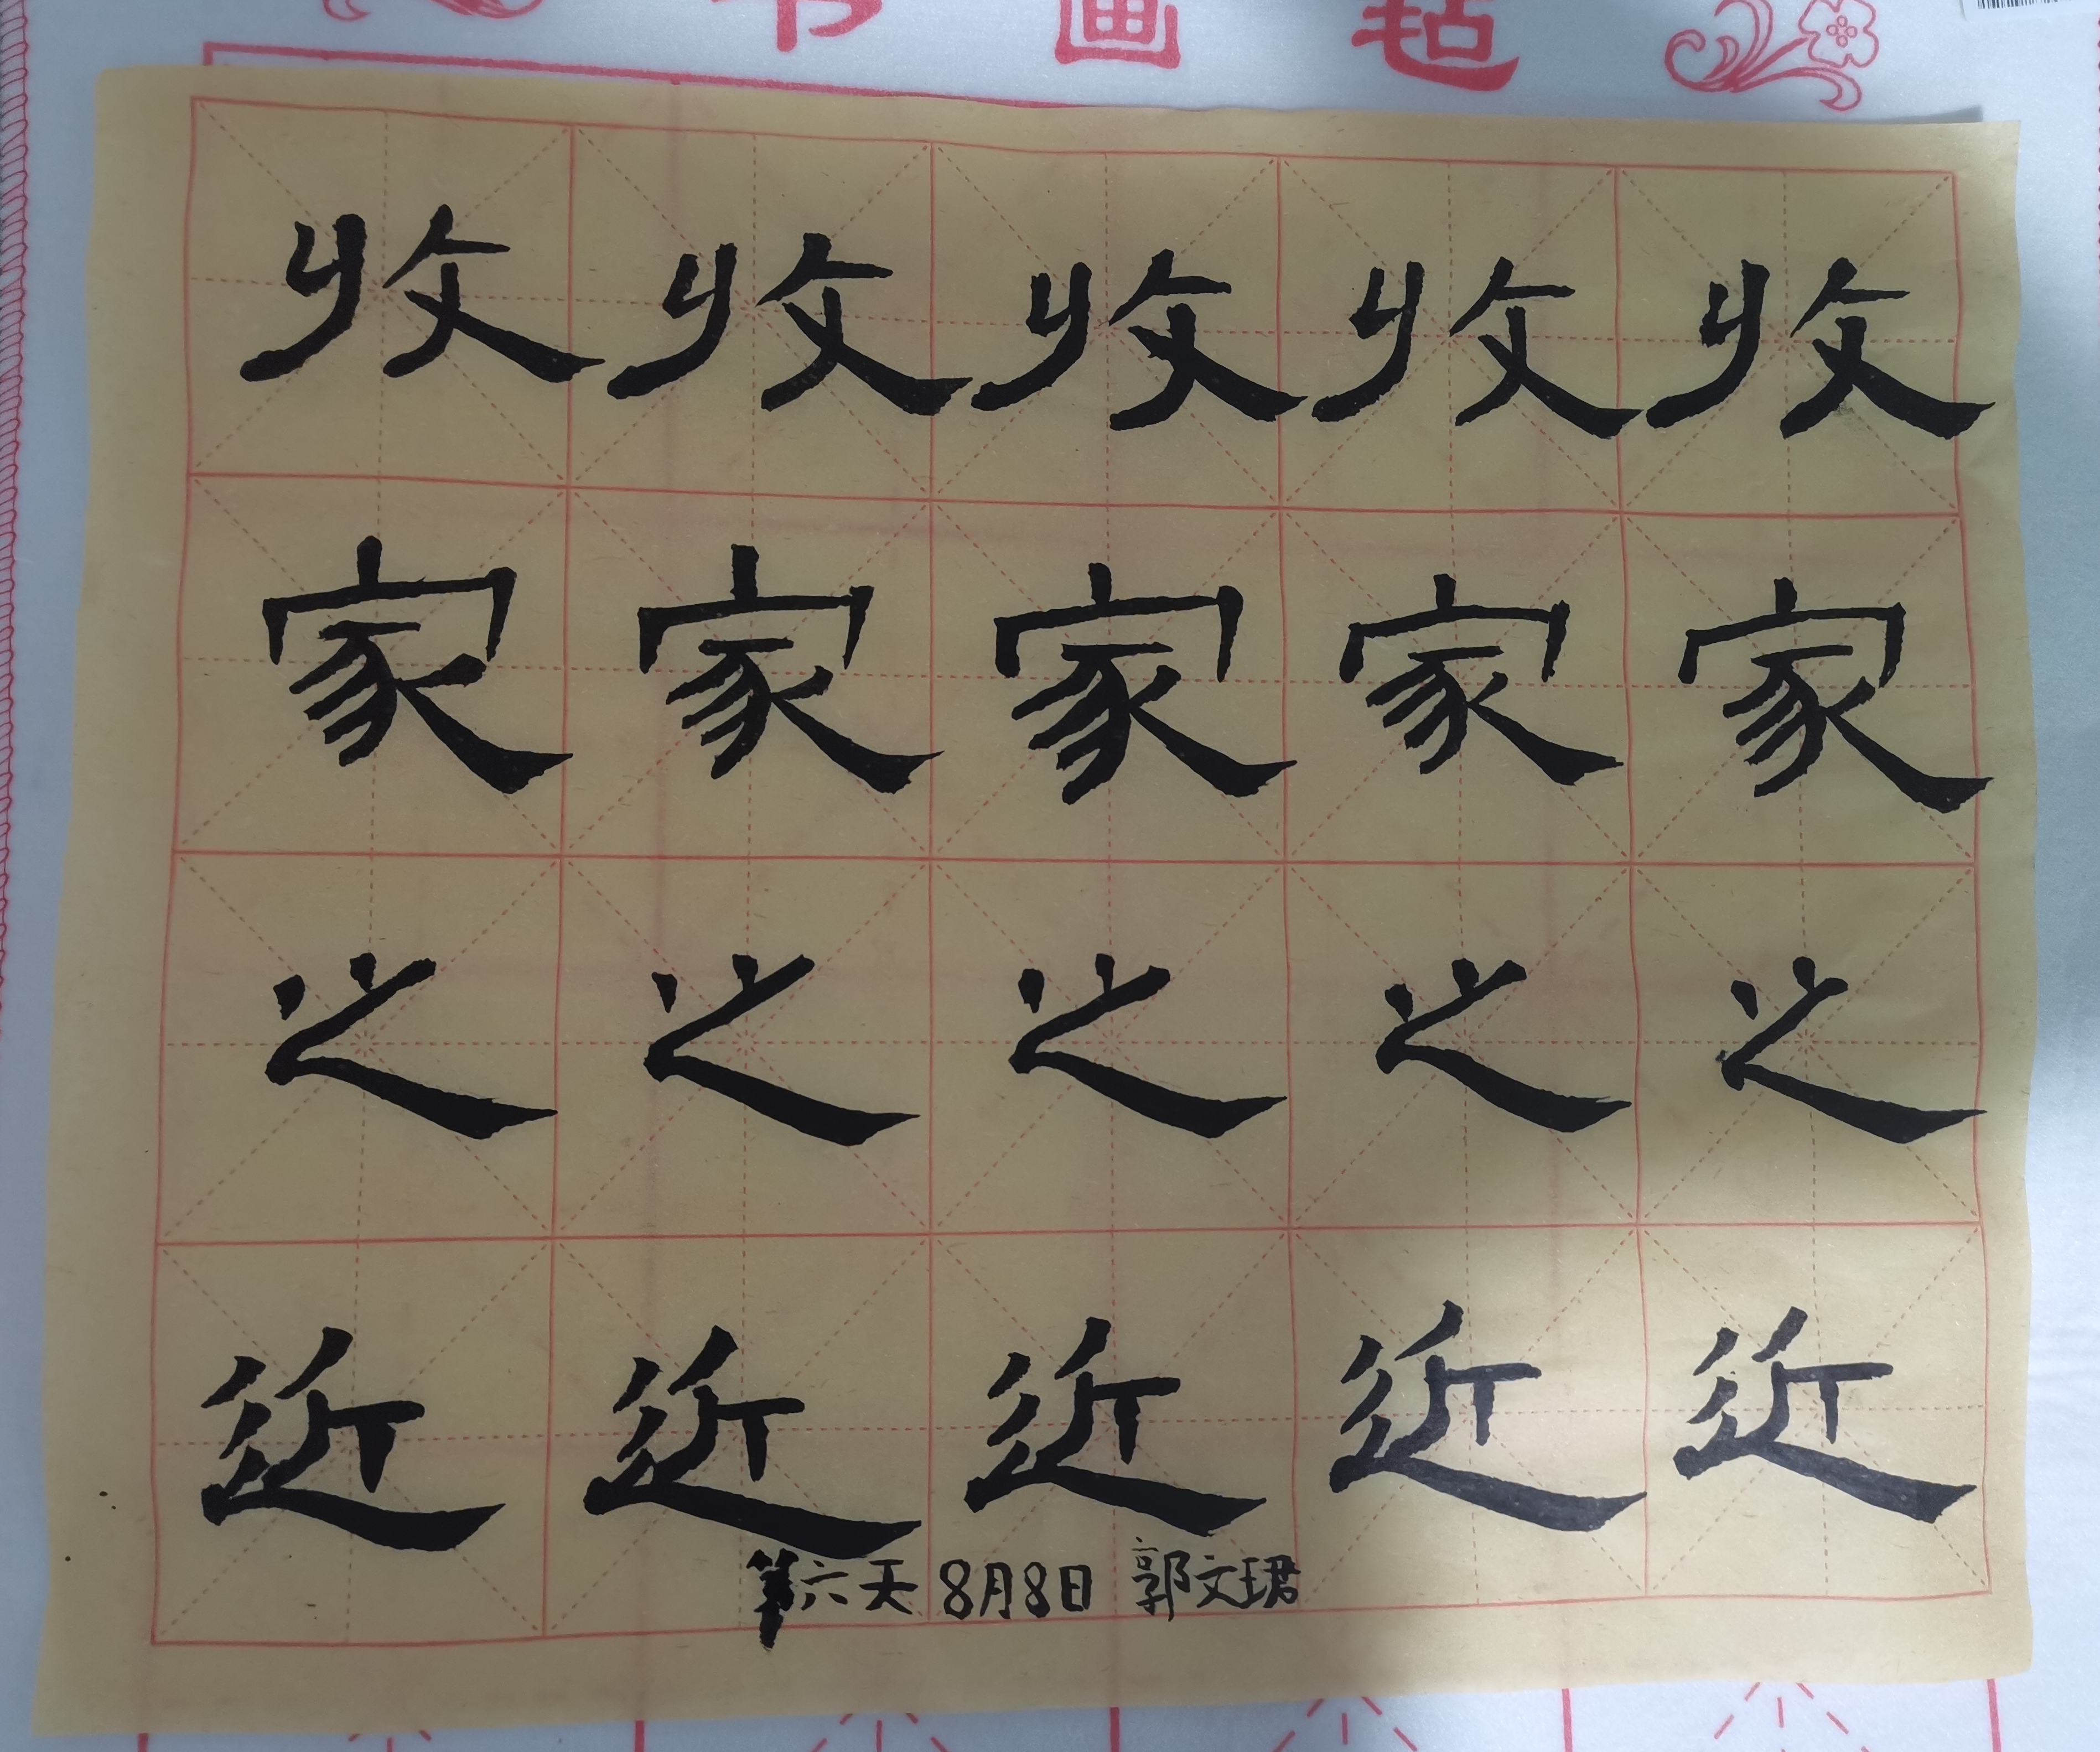 书画毡
收收收收收
家家家家家
之之之之之
近近近近近
第六天 8月8日 郭文珺